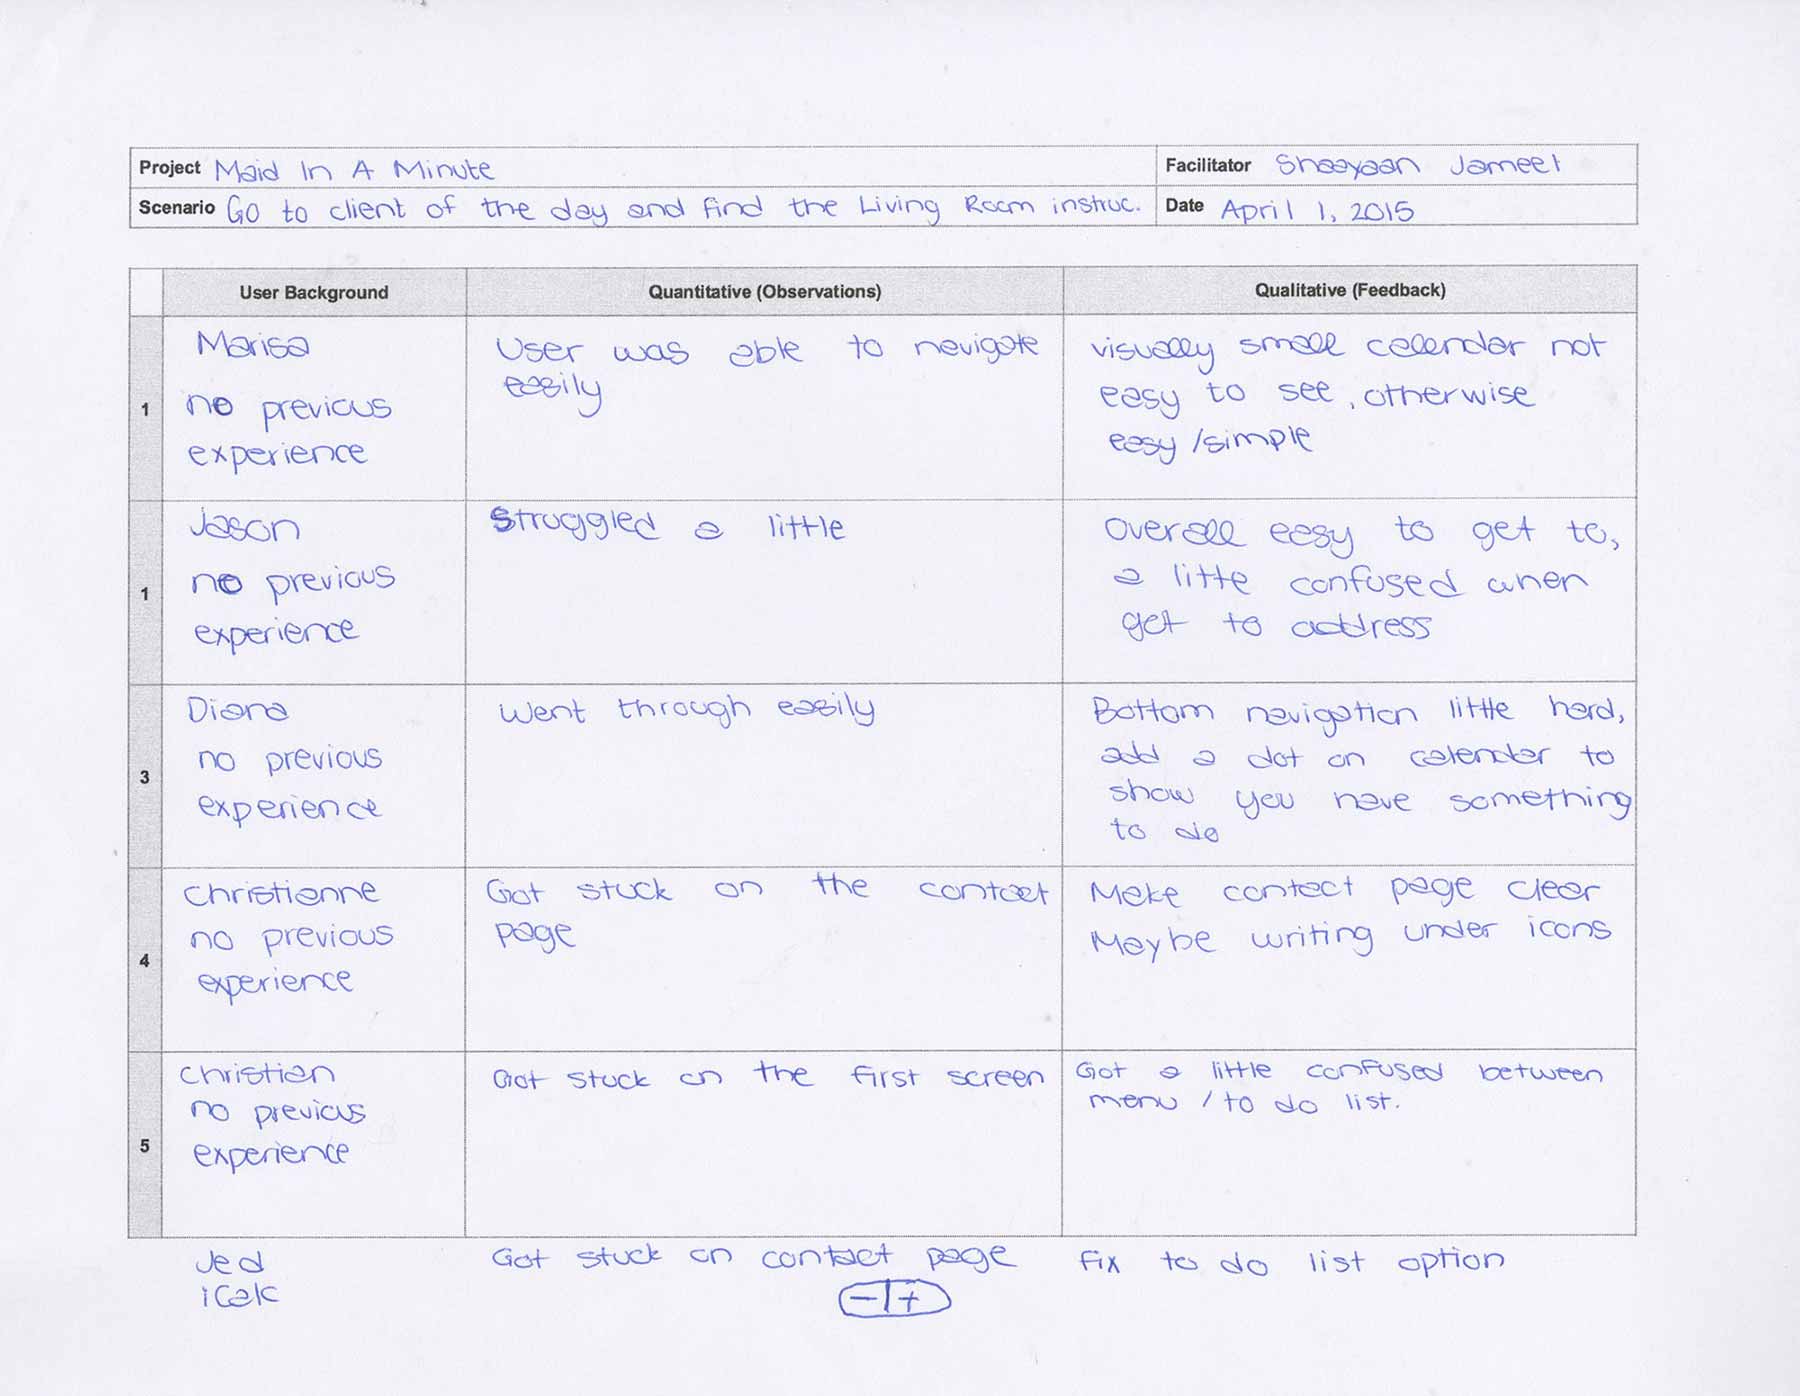 Project Maid In A Minute
Facilitator Shaayaan Jameel
Scenario Go to client of the day and find the Living Room instruc.
Date April 1, 2015
User Background
Quantitative (Observations)
Qualitative (Feedback)
1
Marisa
no previous
experience
User was able to navigate
easily
visually small calendar not
easy to see, otherwise
easy/simple
1
Jason
no previous
experience
Struggled a little
Overall easy to get to,
a little confused when
get to address
3
Diana
no previous
experience
Went through easily
Bottom navigation little hard,
add a dot on calender to
show you have something
to do
4
Christianne
no previous
experience
Got stuck on the contact
page
Make contact page clear
Maybe writing under icons
5
Christian
no previous
experience
Got stuck on the first screen
Got a little confused between
menu / to do list.
Jed
iCalc
Got stuck on contact page
-|+
fix to do list option